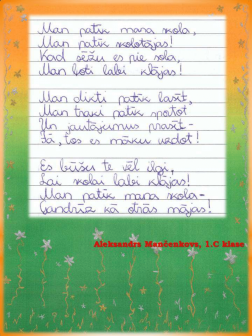 Man patīk mana skola,
Man patīk skolotājas!
Kad sēžu es pie sola,
Man ļoti labi klājas!
Man dikti patīk lasīt,
Man traki patīk
Un jautājumus prasīt -
Jā, tos es māku uzdot!
Es būšu te vēl ilgi,
Lai skolai labi klājas!
Man patīk mana skola -
Gandrīz kā otrās mājas!
Aleksandra Mančenkova, 1.C klase